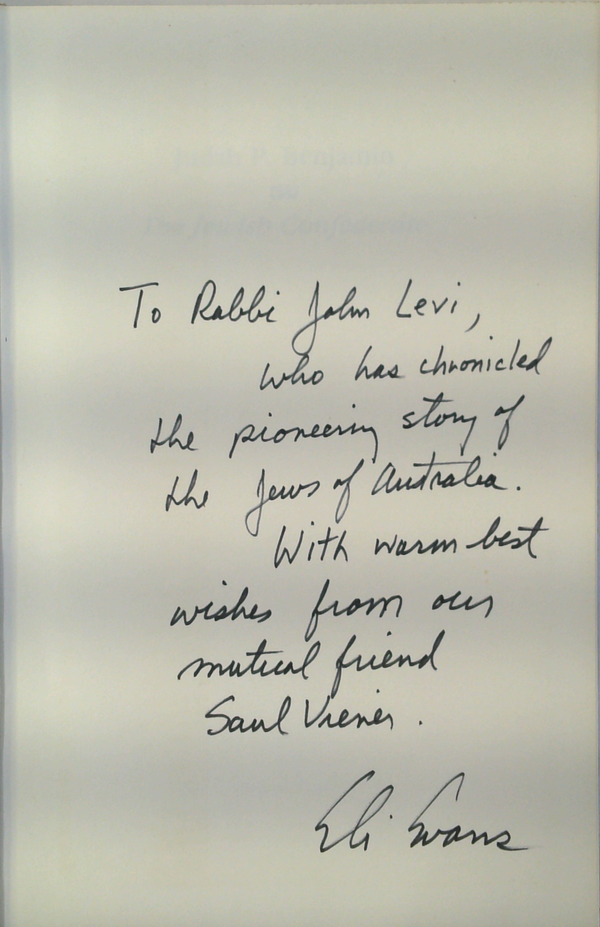 Judah P. Benjamin
The Jewish Confederate
To Rabbi John Levi,
who has chronicled
the pioneering story of
the Jews of Australia.
With warm best
wishes from our
mutual friend
Saul Viener.
Eli Evans